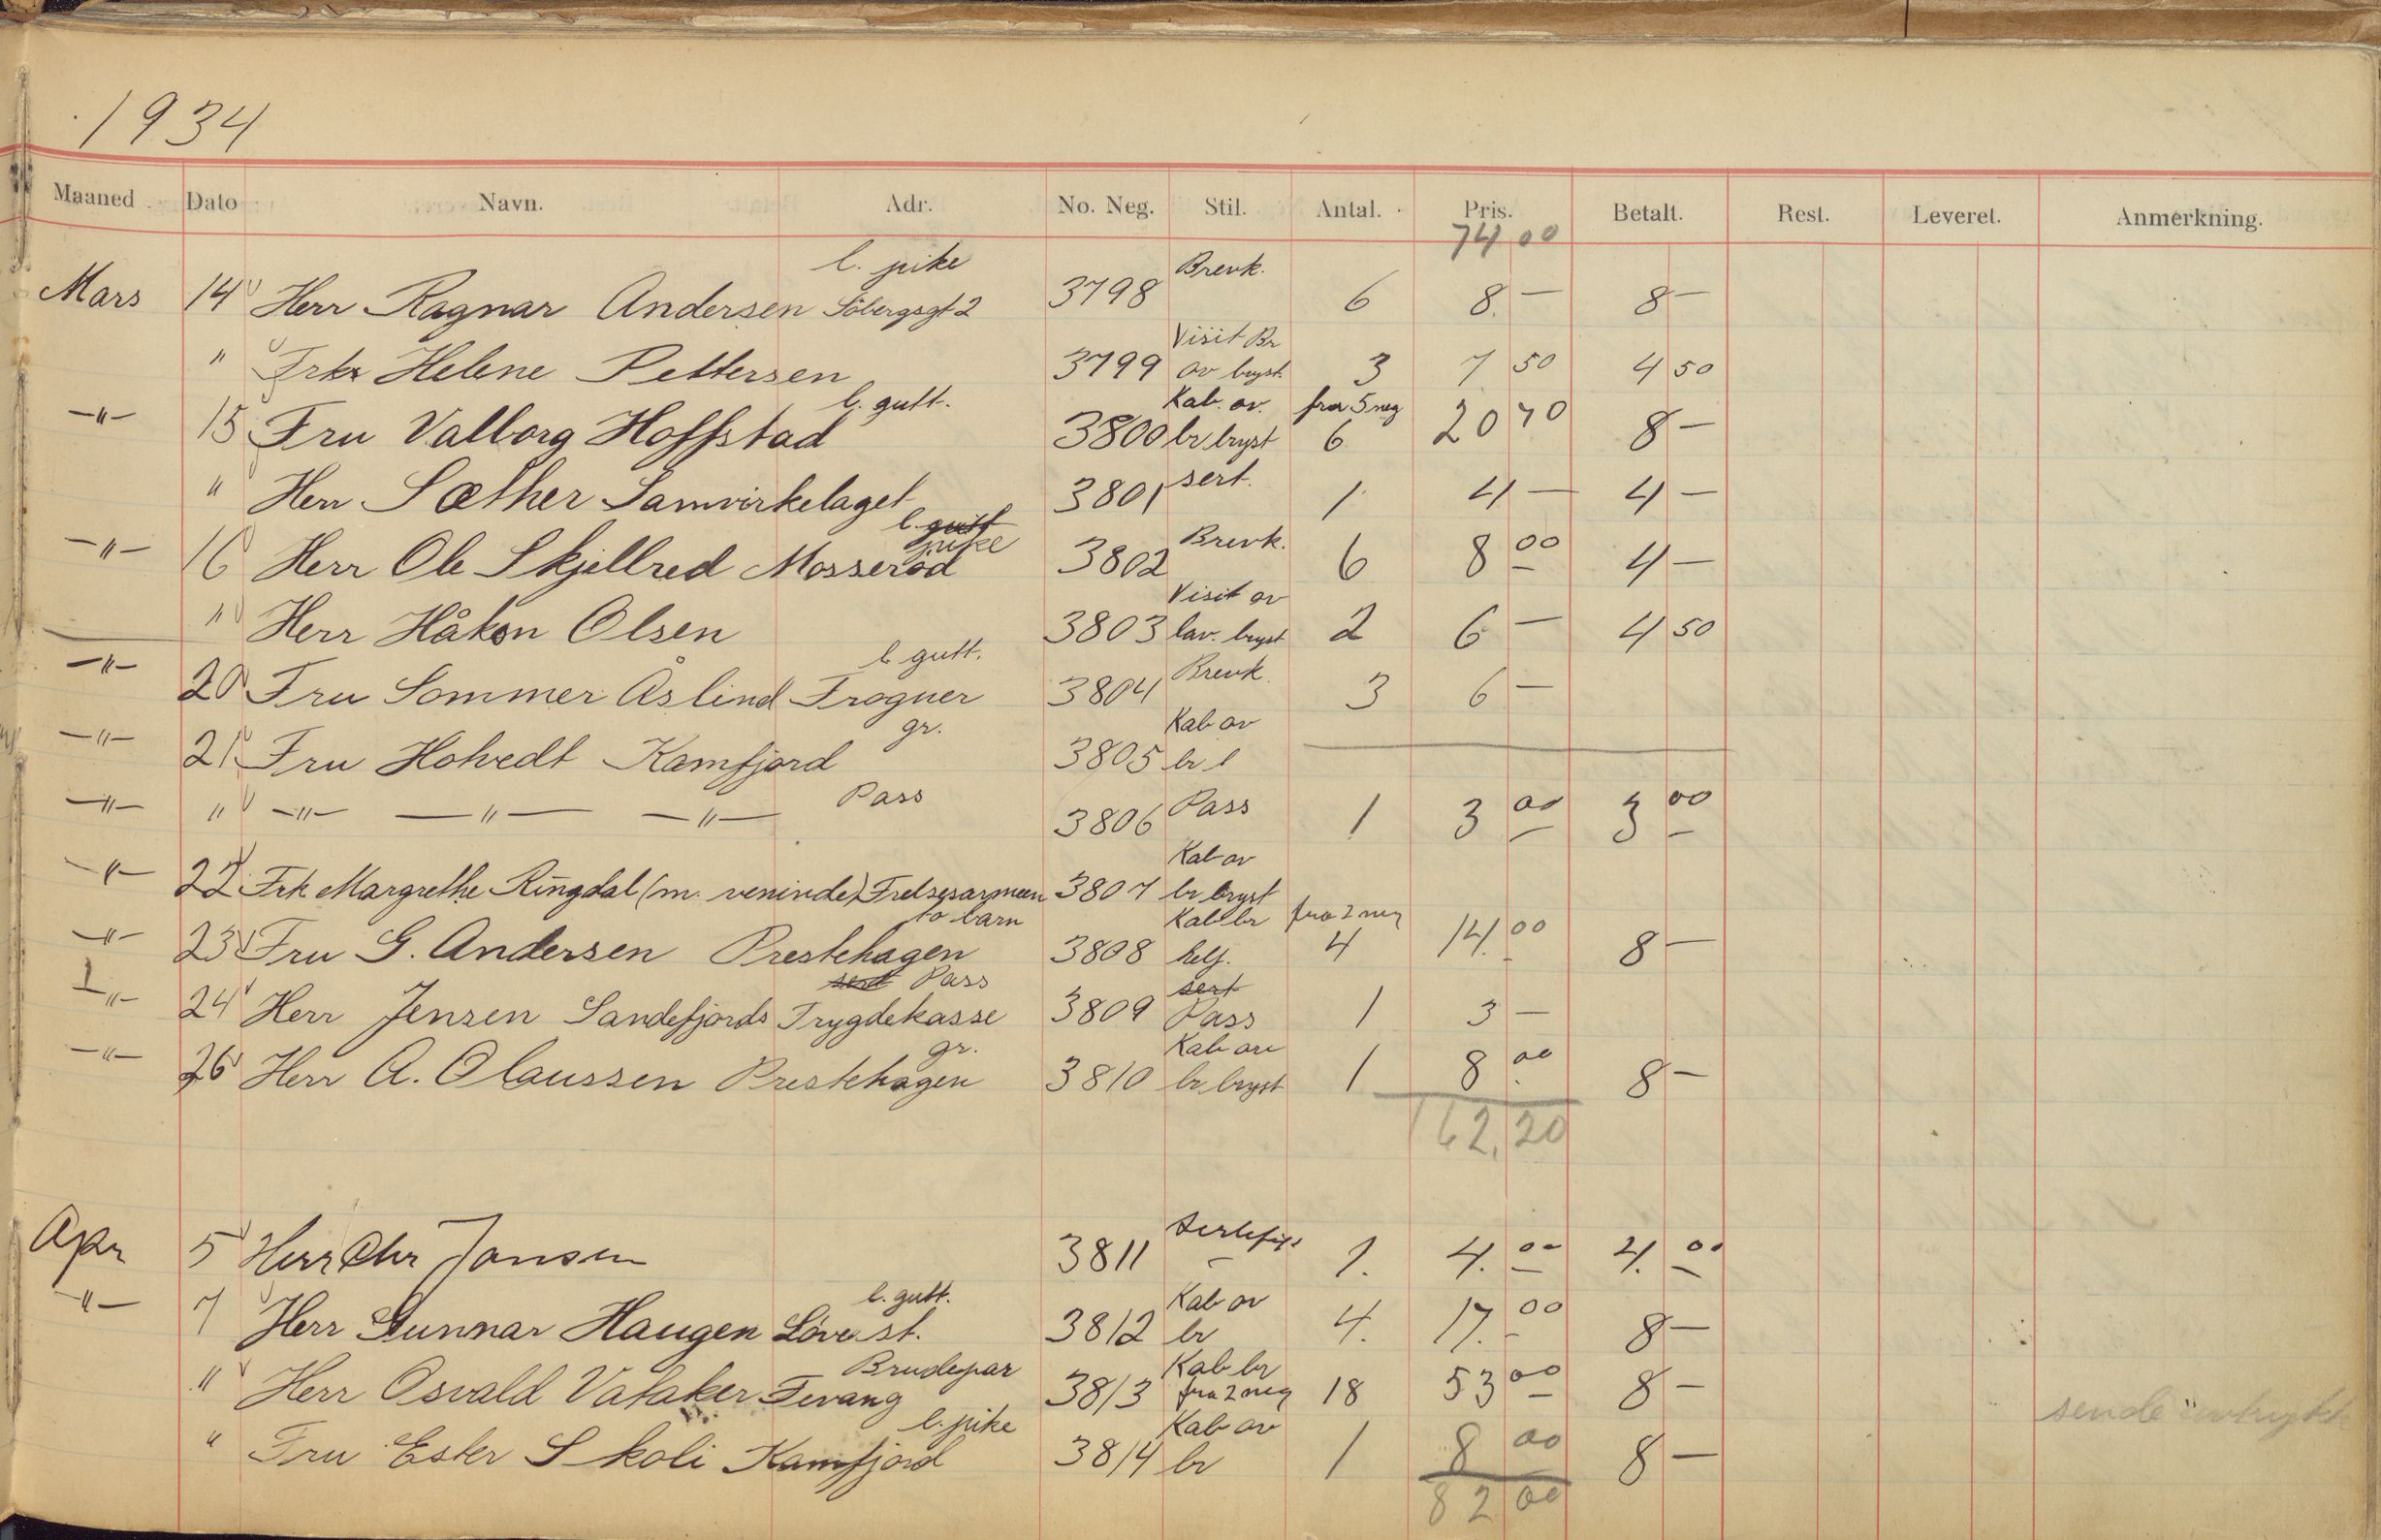 1934
Maaned Dato Navn. Adr. No. Neg. Stil. Antal. Pris. Betalt. Rest. Leveret. Anmerkning.
74 00
l. pike Brevk.
Mars 14 Herr Ragnar Andersen Söbergsgt 2 3798 6 8. — 8 —
Visit Br
" Frk Helene Pettersen 3799 av bryst. 3 7 50 4 50
l. gutt. Kab. av. fra 5 neg
—"— 15 Fru Valborg Hoffstad 3800 br bryst 6 20 70 8 —
sert.
" Herr Sæther Samvirkelaget 3801 1 4 — 4 —
l. gutt
pike Brevk.
—"— 16 Herr Ole Skjellred Mosserød 3802 6 8 00 4 —
Visit av
" Herr Håkon Olsen 3803 lav. bryst 2 6 — 4 50
l gutt. Brevk.
—"— 20 Fru Sommer Åslind Frogner 3804 3 6 —
gr. Kab av
—"— 21 Fru Hohvedt Kamfjord 3805 br l
Pass Pass
—"— " —"— —"— —"— 3806 1 3 00 3 00
Kab av
—"— 22 Frk Margrethe Ringdal (m. veninde) Frelsesarmeen 3807 br bryst
to barn Kab br fra 2 neg
—"— 23 Fru G. Andersen Prestehagen 3808 helf. 4 14. 00 8 —
sert Pass sert
—"— 24 Herr Jensen Sandefjords Trygdekasse 3809 Pass 1 3 —
gr. Kab av
—"— 26 Herr A. Olaussen Prestehagen 3810 br bryst 1 8 00 8 —
162,20
Apr 5 Herr Chr Jansen 3811 1. 4. 00 4. 00
l. gutt. Kab av
—"— 7 Herr Gunnar Haugen Löve st. 3812 br 4. 17. 00 8 —
Brudepar Kab br
" Herr Osvald Vataker Fevang 3813 fra 2 neg 18 53 00 8 —
l. pike Kab av
" Fru Ester Skoli Kamfjord 3814 br 1 8 00 8 —
sende
82 00